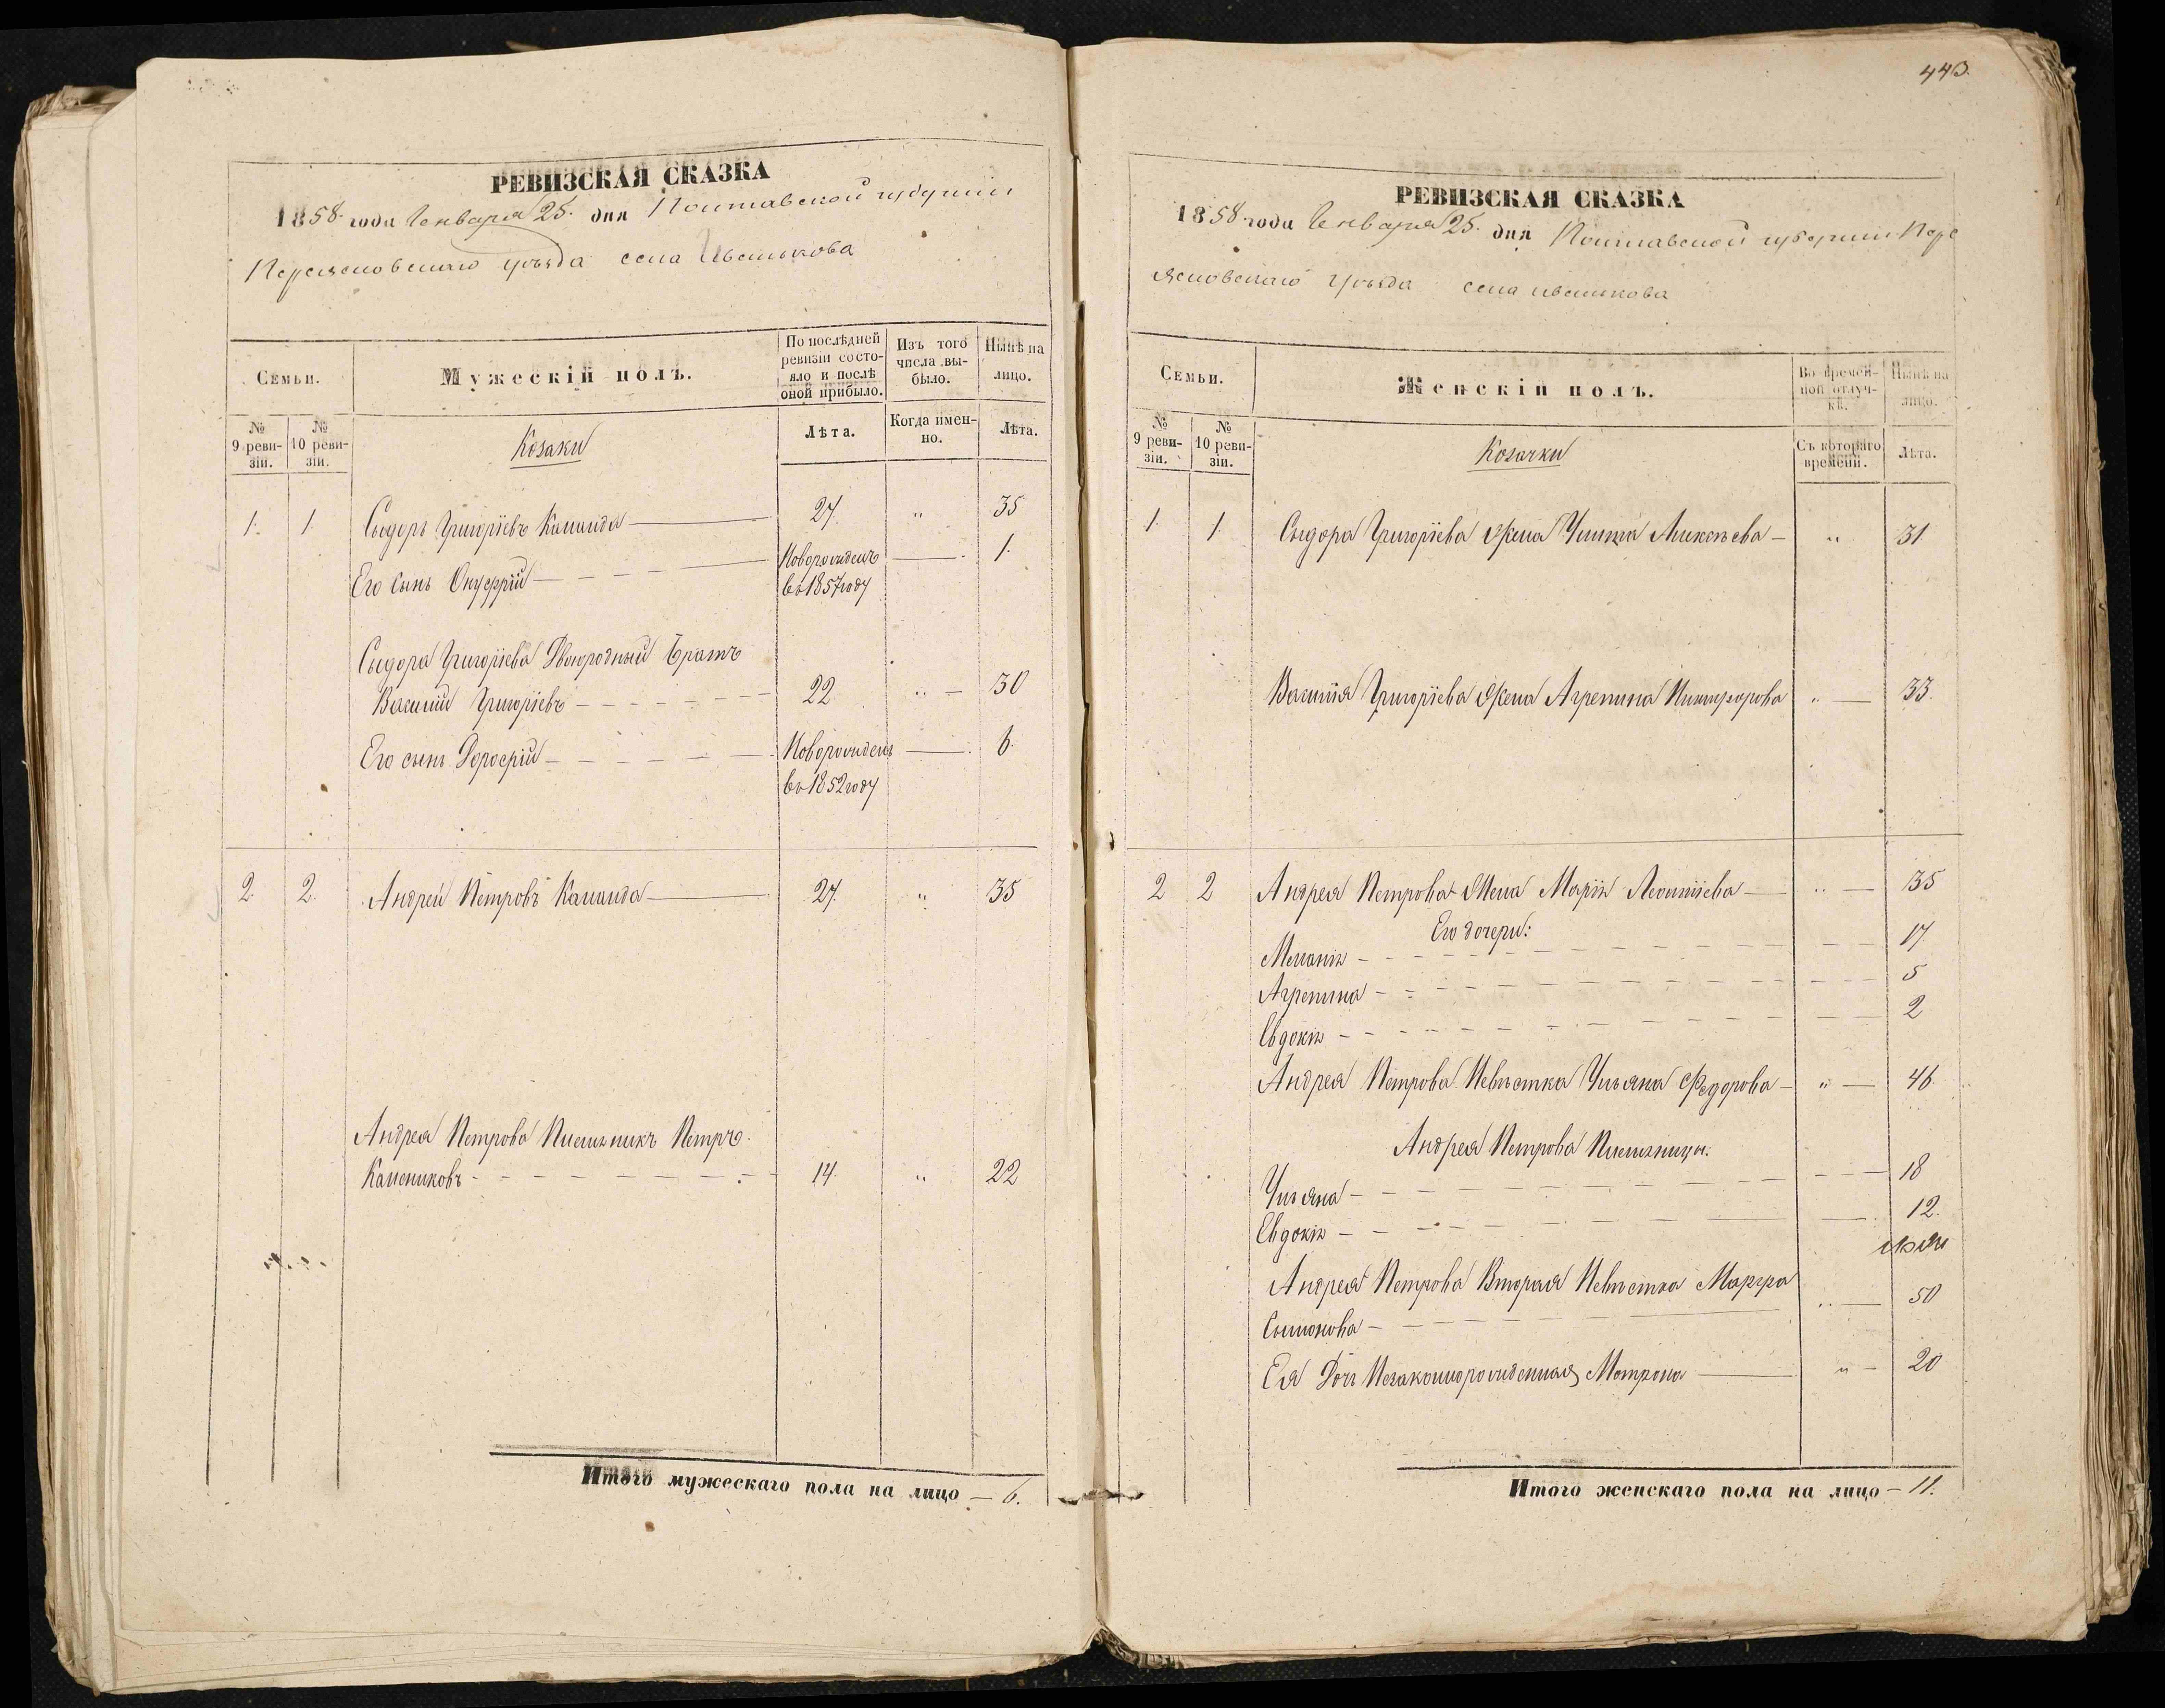 РЕВИЗСКАЯ СКАЗКА
1858 года Генваря 25. дня Полтавской губернии
Переясловскаго уѣзда села Ивашькова
Семьи.
Мужескій полъ.
По послѣдней ревизіи состояло и послѣ оной прибыло.
Изъ того числа выбыло.
Нынѣ на лицо.
№ 9 ревизіи.
№ 10 ревизіи.
Козаки
Лѣта.
Когда именно.
Лѣта.
1. 1. Сыдоръ Григоріевъ 27. " 35
Его сынъ Онуфрій Новорожденъ 1.
въ 1857 году
Сыдора Григоріева Двоюродный Братъ
Василій Григоріевъ 22 " 30
Его сынъ Дорофій Новорожденъ 6.
въ 1852 году
2. 2. Андрей Петровъ 27. " 35
Андрея Петрова Племянникъ Петръ
14. " 22
Итого мужескаго пола на лицо — 6.
443.
РЕВИЗСКАЯ СКАЗКА
1858 года Генваря 25. дня Полтавской губернии Пере
ясловскаго уѣзда села Ивашкова
Семьи.
Женскій полъ.
Во временной отлучкѣ.
Нынѣ на лицо.
№ 9 ревизіи.
№ 10 ревизіи.
Козачки
Съ котораго времени.
Лѣта.
1. 1. Сыдора Григоріева Жена Алексѣева " 31
Василія Григоріева Жена Агрепина Никифорова " 33.
2 2 Андрея Петрова Жена Марія Леонтіева " 35
Его дочери:
Меланія 17.
Агрепина 5
Евдокія 2
Андрея Петрова Невѣстка Ульяна Федорова " 46.
Андрея Петрова Племянницы:
Ульяна 18
Евдокія 12.
Андрея Петрова Вторая Невѣстка Марфа
Сымонова " 50
Ея Дочь Незаконнорожденная Матрона " 20
Итого женскаго пола на лицо — 11.